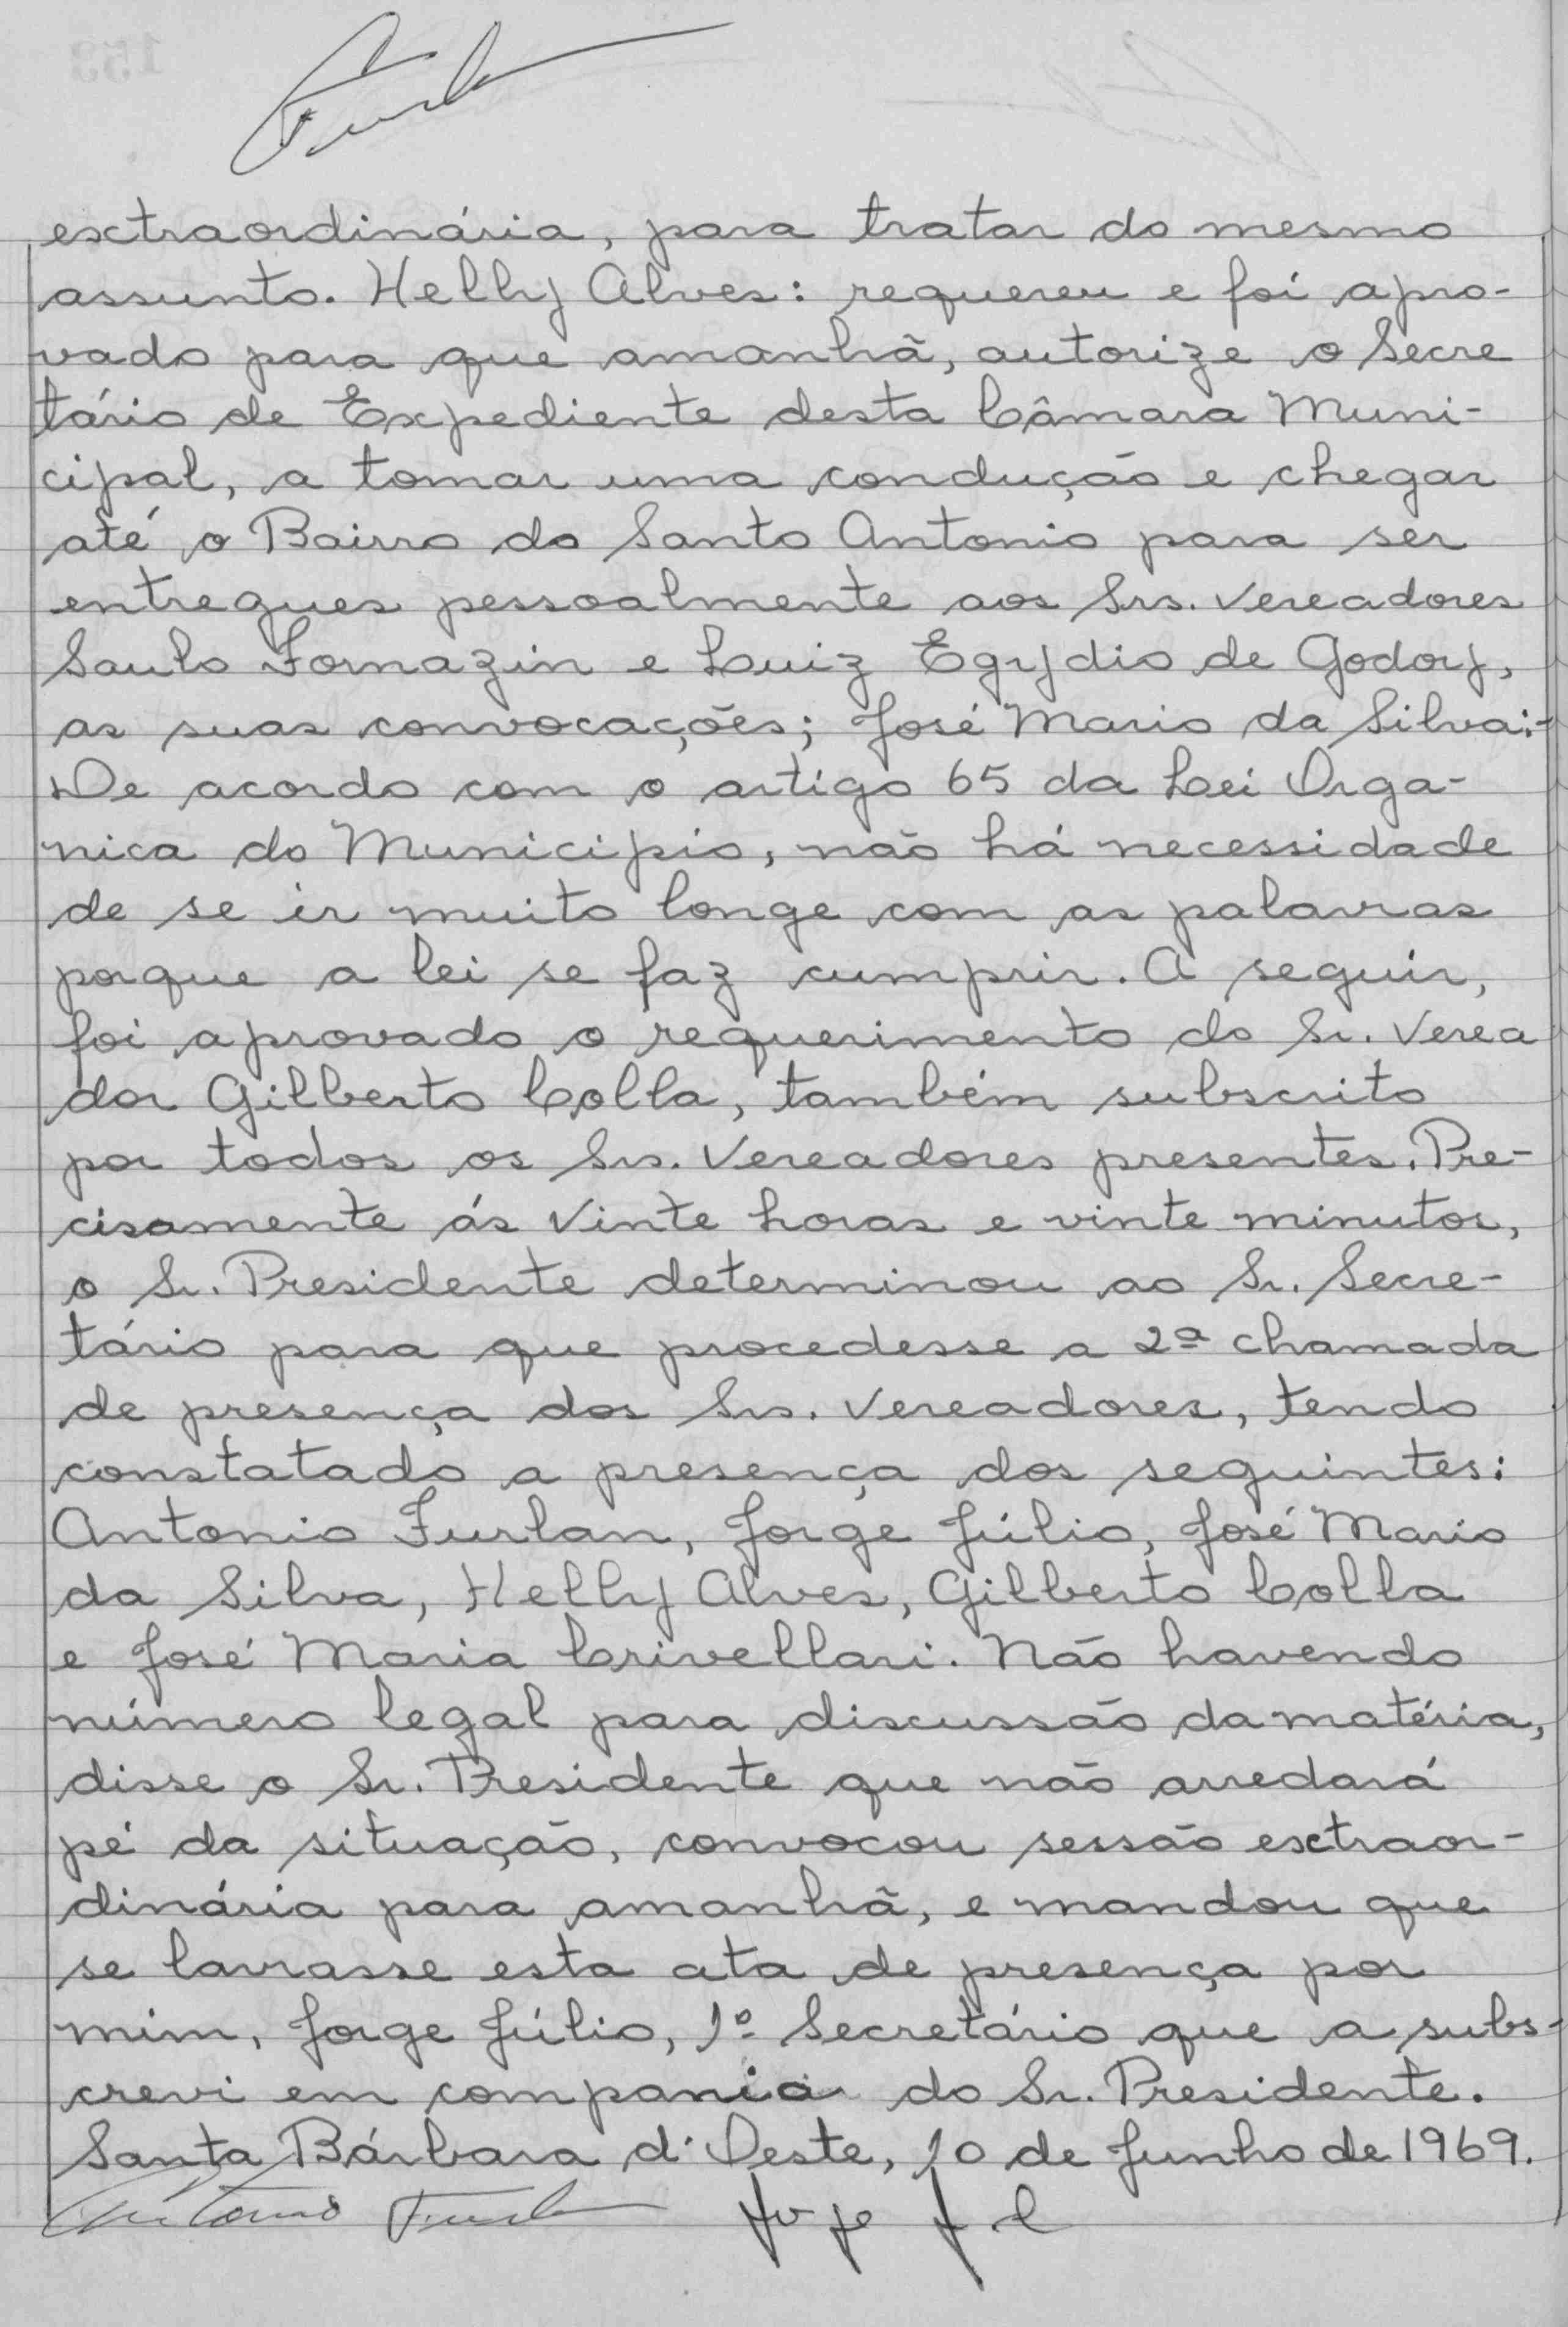 extraordinária, para tratar do mesmo
assunto. Helly Alves: requereu e foi apro-
vado para que amanhã, autorize o Secre
tário de Expediente desta Câmara Muni-
cipal, a tomar uma condução e chegar
até o Bairro do Santo Antonio para ser
entregues pessoalmente aos Srs. Vereadores
Saulo Fornazin e Luiz Egydio de Godoy,
as suas convocações; José Mario da Silva:-
De acordo com o artigo 65 da Lei Orga-
nica do Municipio, não há necessidade
de se ir muito longe com as palavras
porque a lei se faz cumprir. A seguir,
foi aprovado o requerimento do Sr. Verea
dor Gilberto Colla, também subscrito
por todos os Srs. Vereadores presentes. Pre-
cisamente ás vinte horas e vinte minutos,
o Sr. Presidente determinou ao Sr. Secre-
tário para que procedesse a 2ª chamada
de presença dos Srs. Vereadores, tendo
constatado a presença dos seguintes:
Antonio Furlan, Jorge Júlio, José Mario
da Silva, Helly Alves, Gilberto Colla
e José Maria Crivellari. Não havendo
número legal para discussão da matéria,
disse o Sr. Presidente que não arredará
pé da situação, convocou sessão extraor-
dinária para amanhã, e mandou que
se lavrasse esta ata de presença por
mim, Jorge Júlio, 1º Secretário que a subs-
crevi em compania do Sr. Presidente.
Santa Bárbara d'Oeste, 10 de Junho de 1969.
Antonio Furlan